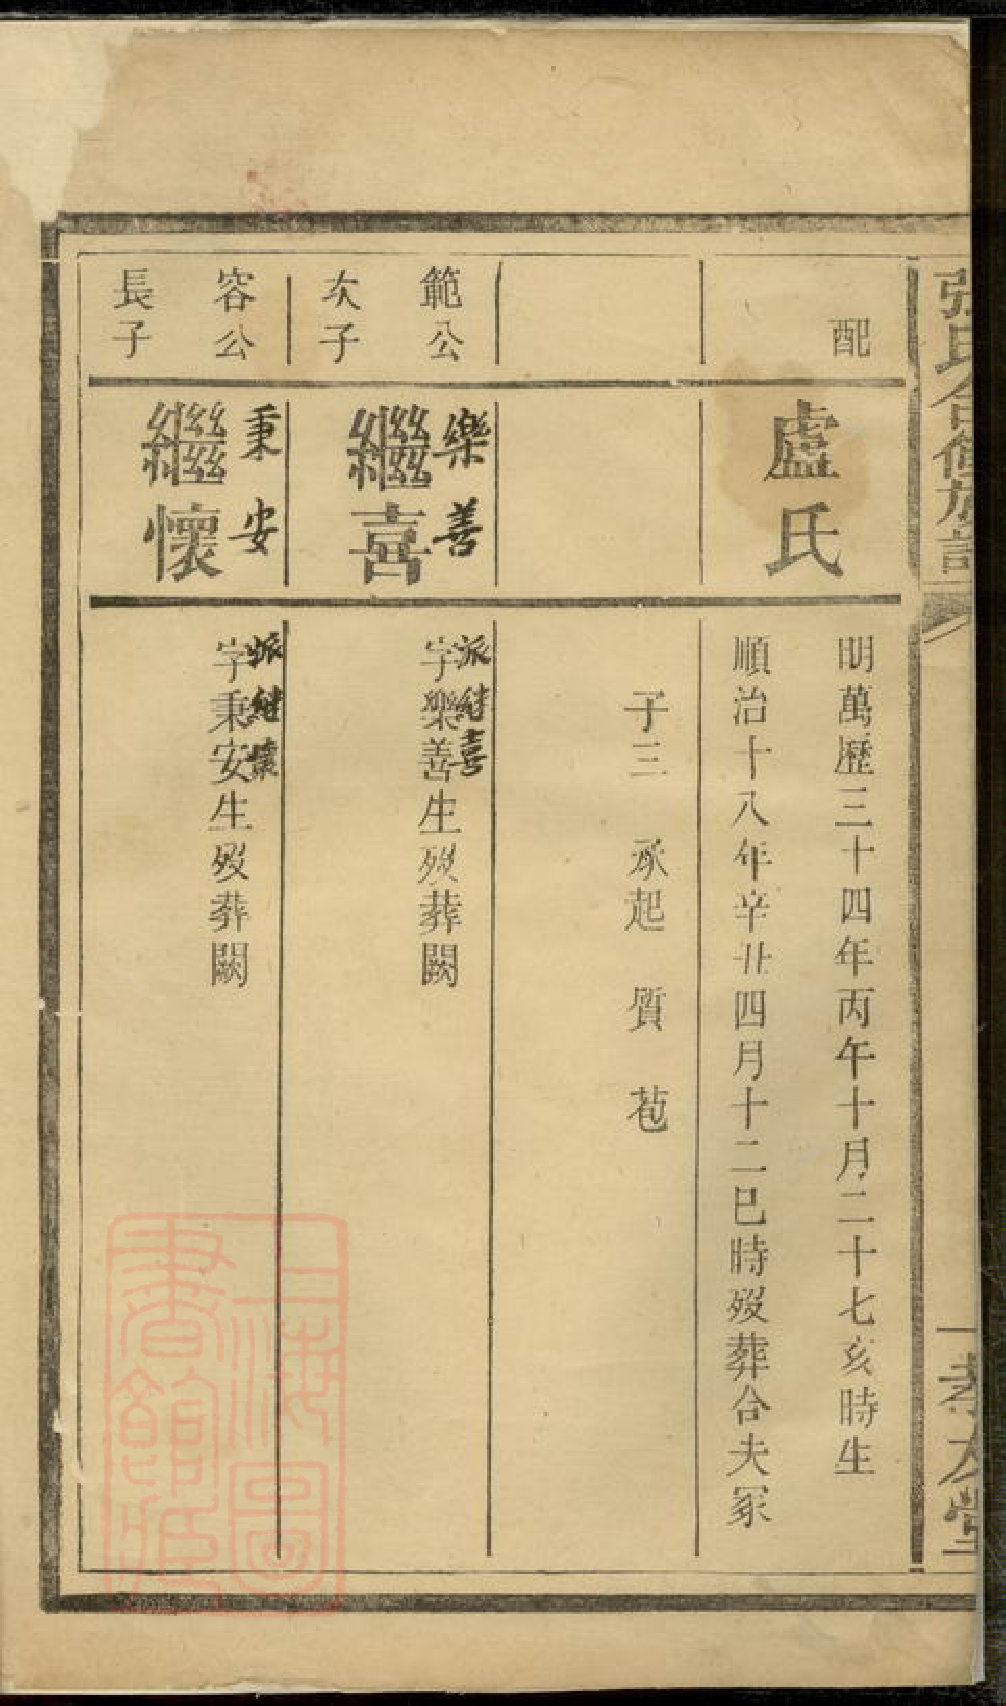 張氏合修族譜
孝友堂
配
盧氏
明萬歷三十四年丙午十月二十七亥時生
順治十八年辛丑四月十二巳時歿葬合夫冢
子三 承起 質 苞
範公
次子
樂善
繼喜
派继喜
字樂善生歿葬闕
容公
長子
秉安
繼懷
派继懷
字秉安生歿葬闕
上海圖
書館藏